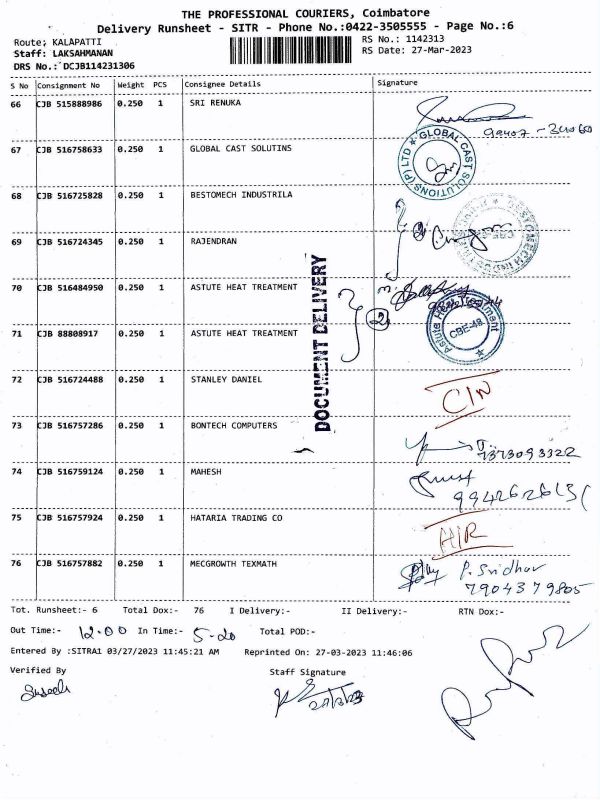 THE PROFESSIONAL COURIERS, Coimbatore
Delivery Runsheet - SITR - Phone No.:0422-3505555 - Page No.:6
Route: KALAPATTI
RS No.: 1142313
Staff: LAKSAHMANAN
RS Date: 27-Mar-2023
DRS No.: DCJB114231306
S No Consignment No Weight PCS Consignee Details Signature
66 CJB 515888986 0.250 1 SRI RENUKA
67 CJB 516758633 0.250 1 GLOBAL CAST SOLUTINS
GLOBAL CAST SOLUTIONS (P) LTD
68 CJB 516725828 0.250 1 BESTOMECH INDUSTRILA
69 CJB 516724345 0.250 1 RAJENDRAN
70 CJB 516484950 0.250 1 ASTUTE HEAT TREATMENT
71 CJB 88808917 0.250 1 ASTUTE HEAT TREATMENT
2
Astute Heat Treatment
CBE-48
DOCUMENT DELIVERY
72 CJB 516724488 0.250 1 STANLEY DANIEL
CIN
73 CJB 516757286 0.250 1 BONTECH COMPUTERS
7373093322
74 CJB 516759124 0.250 1 MAHESH
75 CJB 516757924 0.250 1 HATARIA TRADING CO
H/R
76 CJB 516757882 0.250 1 MECGROWTH TEXMATH
P. Sridhar
7904379805
Tot. Runsheet:- 6 Total Dox:- 76 I Delivery:- II Delivery:- RTN Dox:-
Out Time:- 12.00 In Time:- 5-20 Total POD:-
Entered By :SITRA1 03/27/2023 11:45:21 AM Reprinted On: 27-03-2023 11:46:06
Verified By Staff Signature